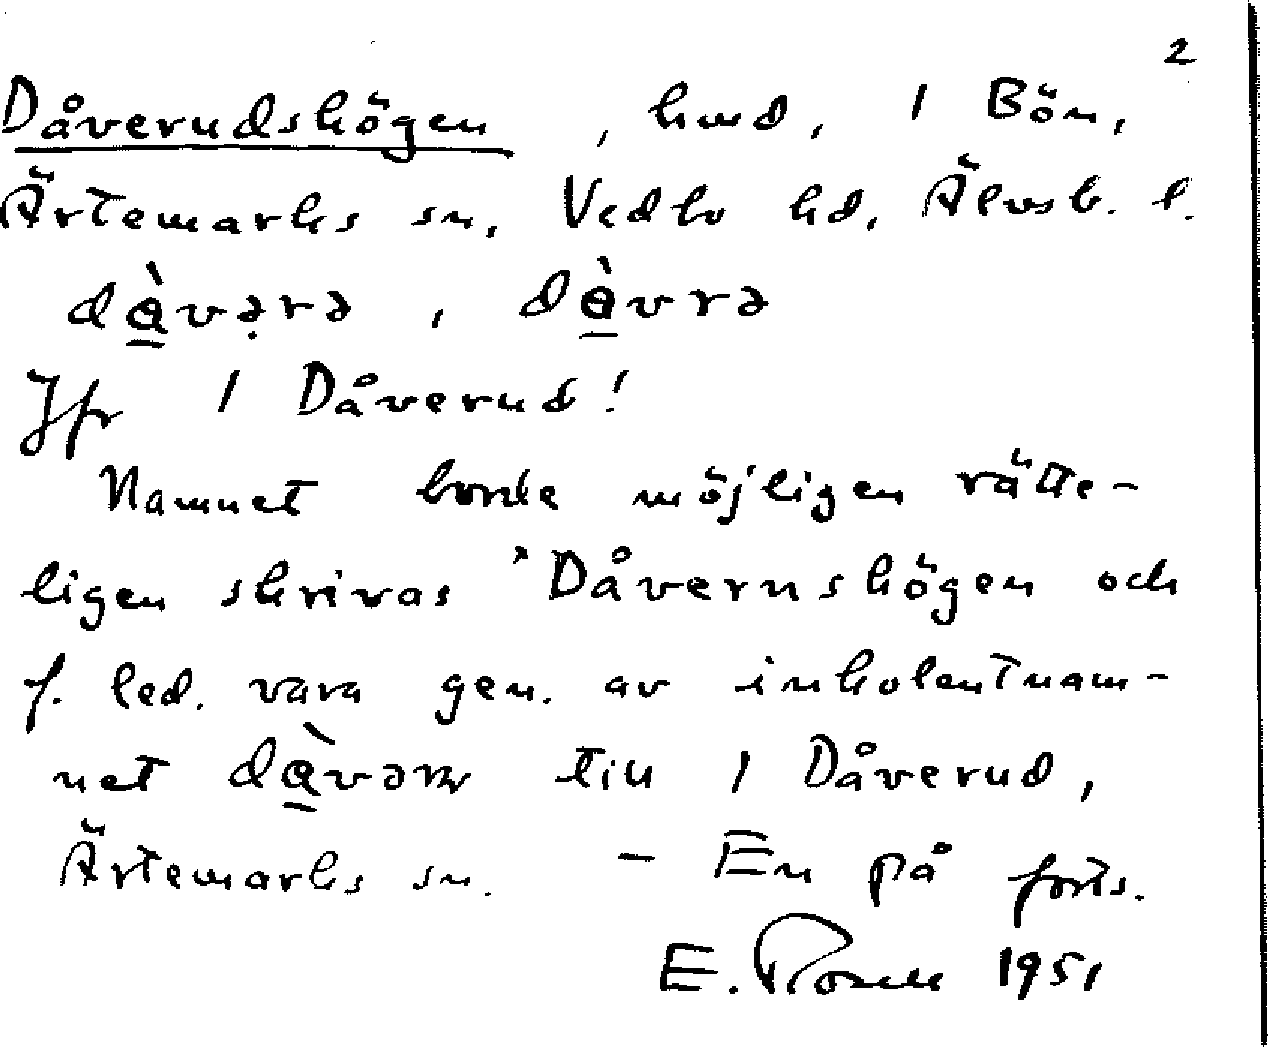 2
Dåverudshögen, hmd, 1 Bön,
Ärtemarks sn, Vedbo hd, Älvsb. l.
dàvərə, dàvrə
Jfr 1 Dåverud!
Namnet borde möjligen rätte-
ligen skrivas *Dåvernshögen och
f. led. vara gen. av inkolentnam-
net dàvəṇ till 1 Dåverud,
Ärtemarks sn. - En på forts.
E. Rosell 1951